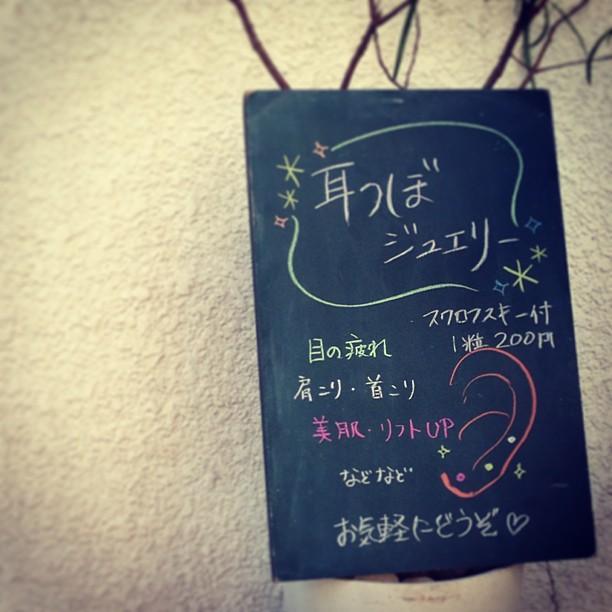 耳つぼ
ジュエリー
スワロフスキー付
1粒 200円
目の疲れ
肩こり・首こり
美肌・リフトUP
などなど
お気軽にどうぞ♡